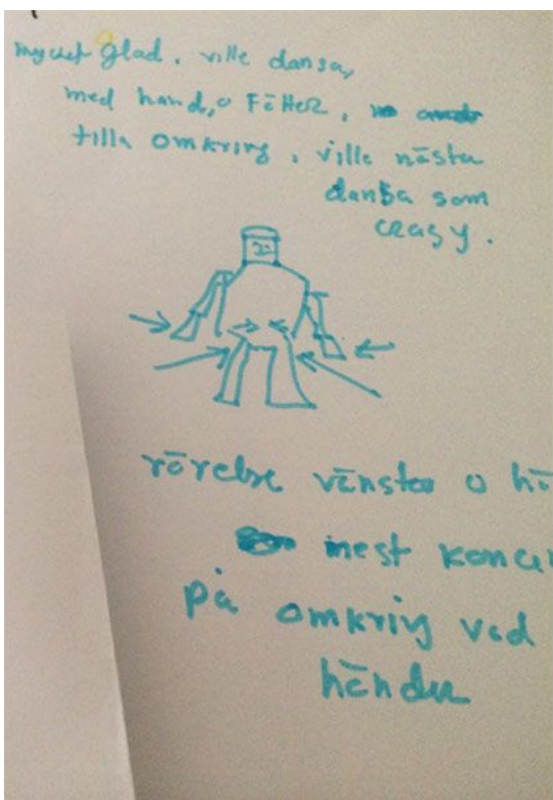 mycket glad. ville dansa,
med hand, o FötteR,
titta omkring, ville nästa
dansa som
crasy.
rörelse vänster o hö
mest konce
på omkring vad
händer